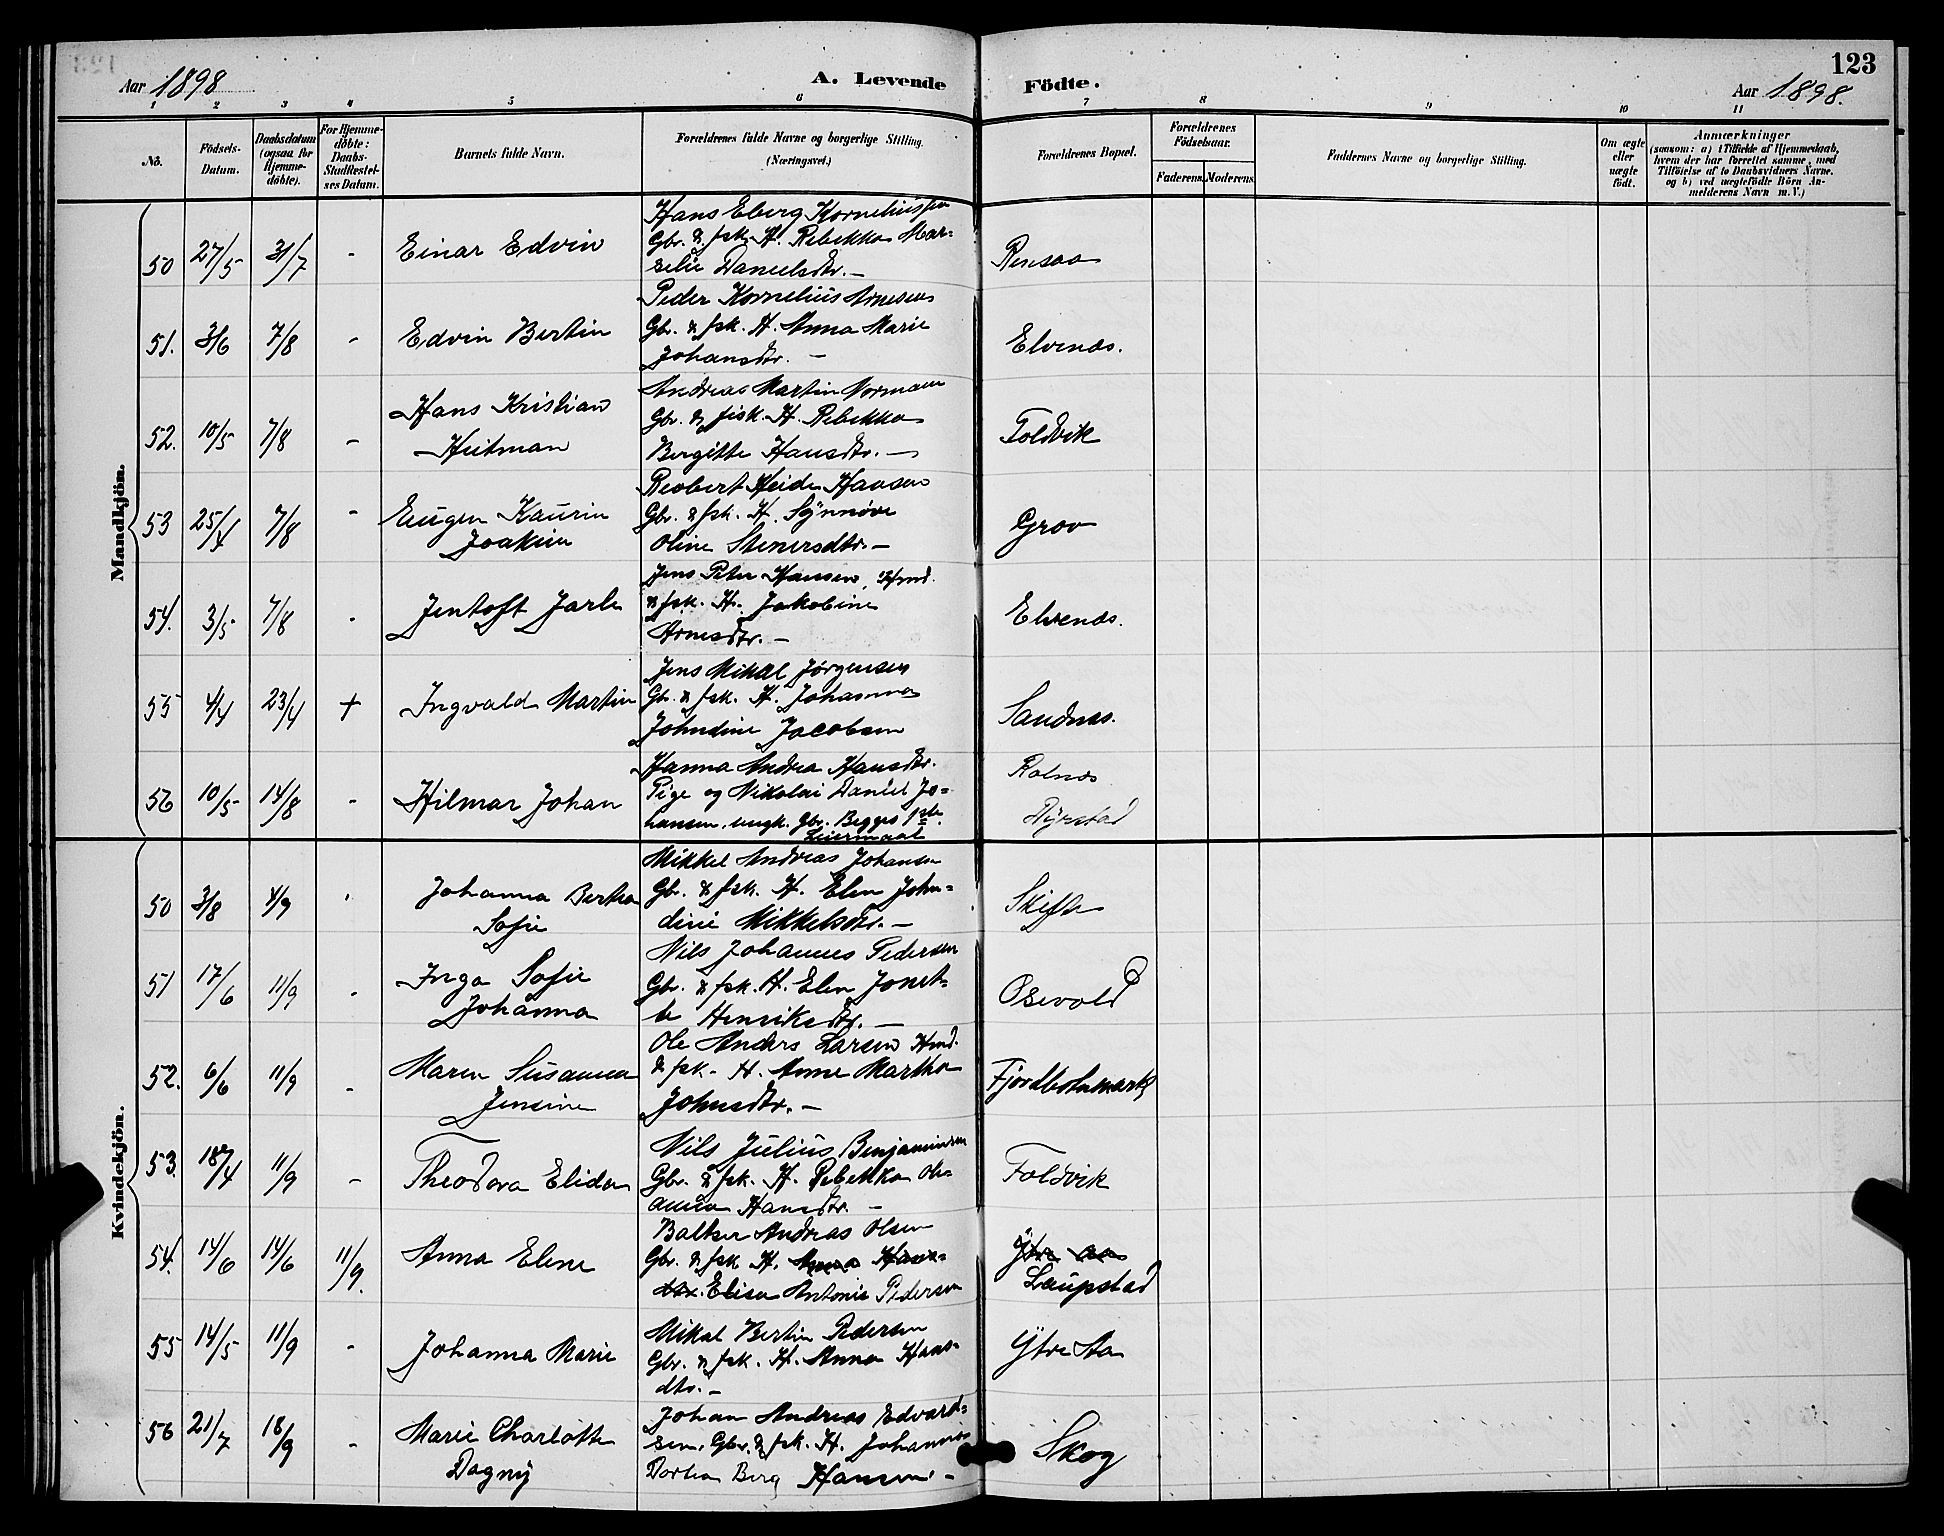 123
Aar 1898
A. Levende Födte.
Aar 1898.
1 2 3 4 5 6 7 8 9 10 11
No.
Födsels-
Datum.
Daabsdatum
(ogsaa for
Hjemme-
döbte).
For Hjemme-
döbte:
Daabs-
Stadfæstel-
ses Datum.
Barnets fulde Navn.
Forældrenes fulde Navne og borgerlige Stilling.
(Næringsvei.)
Forældrenes Bopæl.
Forældrenes
Födselsaar.
Faderens. Moderens.
Faddernes Navne og borgerlige Stilling.
Om ægte
eller
uægte
født.
Anmærkninger
(saasom: a) i Tilfælde af Hjemmedaab,
hvem der har forrettet samme, med
Tilföielse af to Daabsvidners Navne.
og b) ved uægtefödte Börn An-
melderens Navn m. V.)
Mandkjön.
Hans Eberg Korneliussen
50 27/5 31/7 - Einar Edvin Gbr. & fsk. H. Rebekka Mar- Rensaa
selie Danielsdtr. -
Peder Kornelius Arnesen
51. 3/6 7/8 - Edvin Bertin Gbr. & fsk. H. Anna Marie Elvenæs.
Johansdtr. -
Hans Kristian Andreas Martin Normann
52. 10/5 7/8 - Gbr. & fisk. H. Rebekka Foldvik
Heitman Bergitte Hansdtr. -
Reobert Heide Hansen
53 25/4 7/8 - Eugen Kaurin Gbr. & fsk. H. Synnöve Grov
Joakim Oline Stenersdtr. -
Jens Peter Hansen, Hmd.
54. 3/5 7/8 - Jentoft Jarle & fsk. H. Jakobine Elvenæs.
Arnesdtr. -
Jens Mikal Jørgensen
55 4/4 23/4 + Ingvald Martin Gbr. & fsk. H. Johanna Sandnæs.
Johndine Jacobsen
Hanna Andrea Hansdtr. Rolnæs
56 10/5 14/8 - Hilmar Johan Pige og Nikolai Daniel Jo- Dyrstad
hansen, ungk. Gbr. Begges 1ste
Leiermaal
Kvindekjön.
Mikkel Andreas Johansen
50 3/8 4/9 - Johanna Bertea Gbr. & fsk. H. Elen John- Skifte
Sofie dine Mikkelsdtr. -
Nils Johannes Pedersen
51 17/6 11/9 - Inga Sofie Gbr. & fsk. H. Elen Jonet- Osevold
Johanna te Henriksdtr. -
Ole Anders Larsen Hmd.
52. 6/6 11/9 - Maren Susanna & fsk. H. Anne Martha Fjordbotnmark
Jensine Johnsdtr. -
Nils Julius Benjaminsen
53. 18/4 11/9 - Theodora Elida Gbr. & fsk. H. Rebekka Ole- Foldvik
anna Hansdtr. -
Baltser Andreas Olsen
54. 14/6 14/6 11/9. Anna Elene Gbr. & fsk. H. Anna Hans- Ytre Aa
dtr. Elisa Antonie Pedersen Laupstad
Mikal Bertin Pedersen
55 14/5 11/9 - Johanna Marie Gbr. & fsk. H. Anna Hans- Ytre Aa
dtr. -
Johan Andreas Edvard-
56 21/7 18/9 - Marie Charlotte sen, Gbr. & fsk. H. Johanna Skog
Dagny Dortea Berg Hansen -